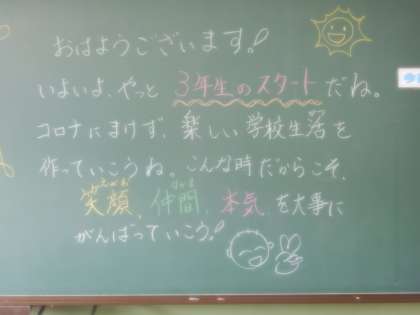 おはようございます!
いよいよ、やっと 3年生のスタート だね。
コロナにまけず、楽しい学校生活を
作っていこうね。こんな時だからこそ、
笑顔、仲間、本気 を大事に
がんばっていこう!